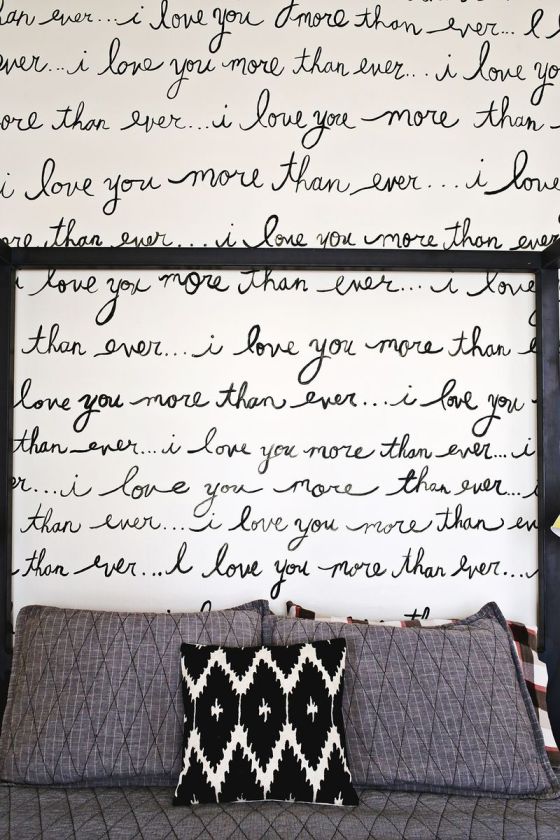 than ever...i love you more than ever... I l
ever...i love you more than ever...i love yo
ore than ever...i love you more than
i love you more than ever...i love
ore than ever...i love you more than ever
i love you more than ever...i love
than ever...i love you more than e
love you more than ever...i love you
than ever...i love you more than ever...i
er...i love you more than ever...i
than ever...i love you more than ev
than ever...I love you more than ever...